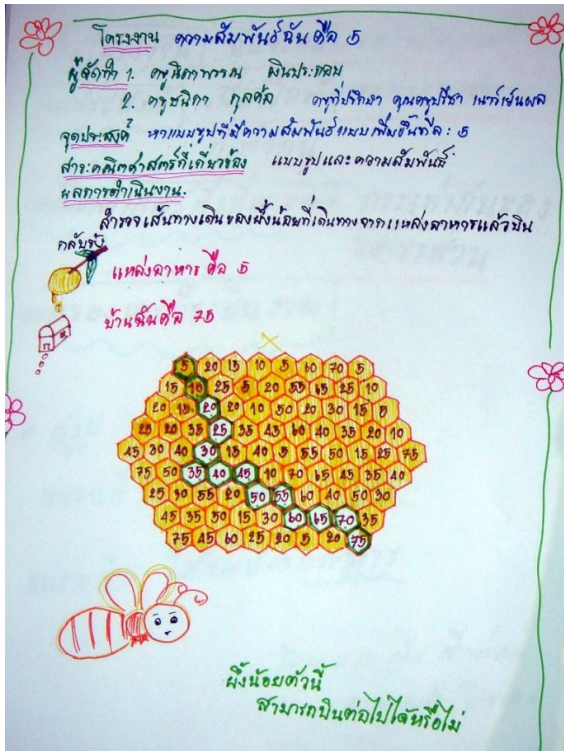 โครงงาน ความสัมพันธ์ฉันคือ 5
ผู้จัดทำ 1. ครูนิภาพรรณ
2. ครูชนิกา กุลคัล ครูที่ปรึกษา คุณครูปรีชา เนาว์เย็นผล
จุดประสงค์ หาแบบรูปที่มีความสัมพันธ์แบบเพิ่มขึ้นทีละ 5
สาระคณิตศาสตร์ที่เกี่ยวข้อง แบบรูปและความสัมพันธ์
ผลการดำเนินงาน
สำรวจเส้นทางเดินของผึ้งน้อยที่เดินทางจากแหล่งอาหารแล้วบิน
กลับรัง
แหล่งอาหาร คือ 5
บ้านฉันคือ 75
5 20 15 10 5 60 70 5
15 10 25 5 20 55 65 25 10
20 15 20 20 10 50 20 30 15 5
25 20 35 25 35 45 60 40 35 20 10
45 30 40 30 15 40 5 55 50 15 25 75
75 50 35 40 45 10 70 65 45 35 40
25 30 55 20 50 55 60 40 50 30
45 35 50 15 30 60 65 70 35
75 45 60 25 20 5 20 75
ผึ้งน้อยตัวนี้
สามารถบินต่อไปได้หรือไม่